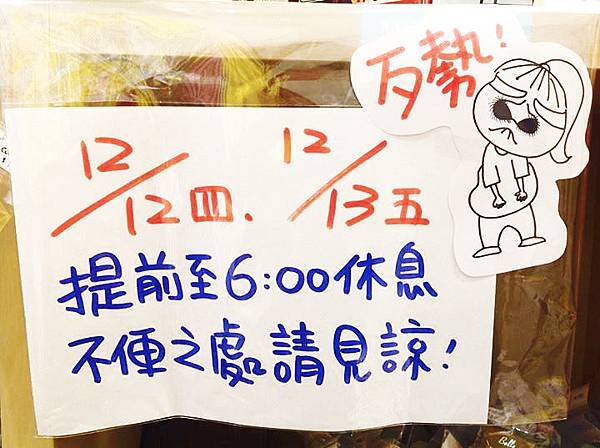 歹勢!
12/12四、12/13五
提前至6:00休息
不便之處請見諒!